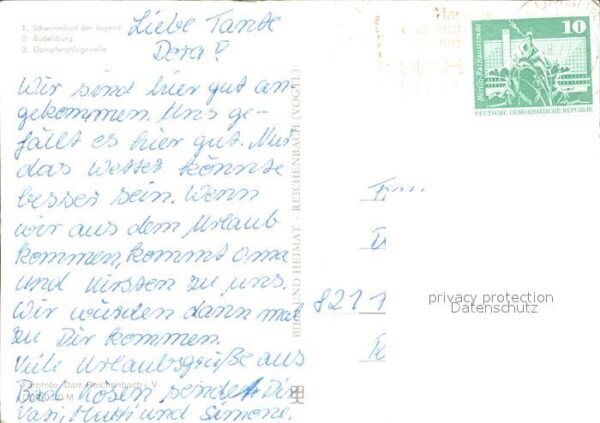 1. Schwimmbad der Jugend
2. Rudelsburg
3. Dampferanlegestelle
Liebe Tante
Dora!
Wir sind hier gut an-
gekommen. Uns ge-
fällt es hier gut. Nur
das Wetter könnte
besser sein. Wenn
wir aus dem Urlaub
kommen, kommt Oma
und Kirsten zu uns.
Wir würden dann mal
zu Dir kommen.
Viele Urlaubsgrüße aus
Bad Kösen sendet Dir
Vati, Mutti und Simone.
Darr, Reichenbach i. V.
BILD UND HEIMAT · REICHENBACH (VOGTL)
10
Berlin-Rathausstraße
DEUTSCHE DEMOKRATISCHE REPUBLIK
8211
privacy protection
Datenschutz